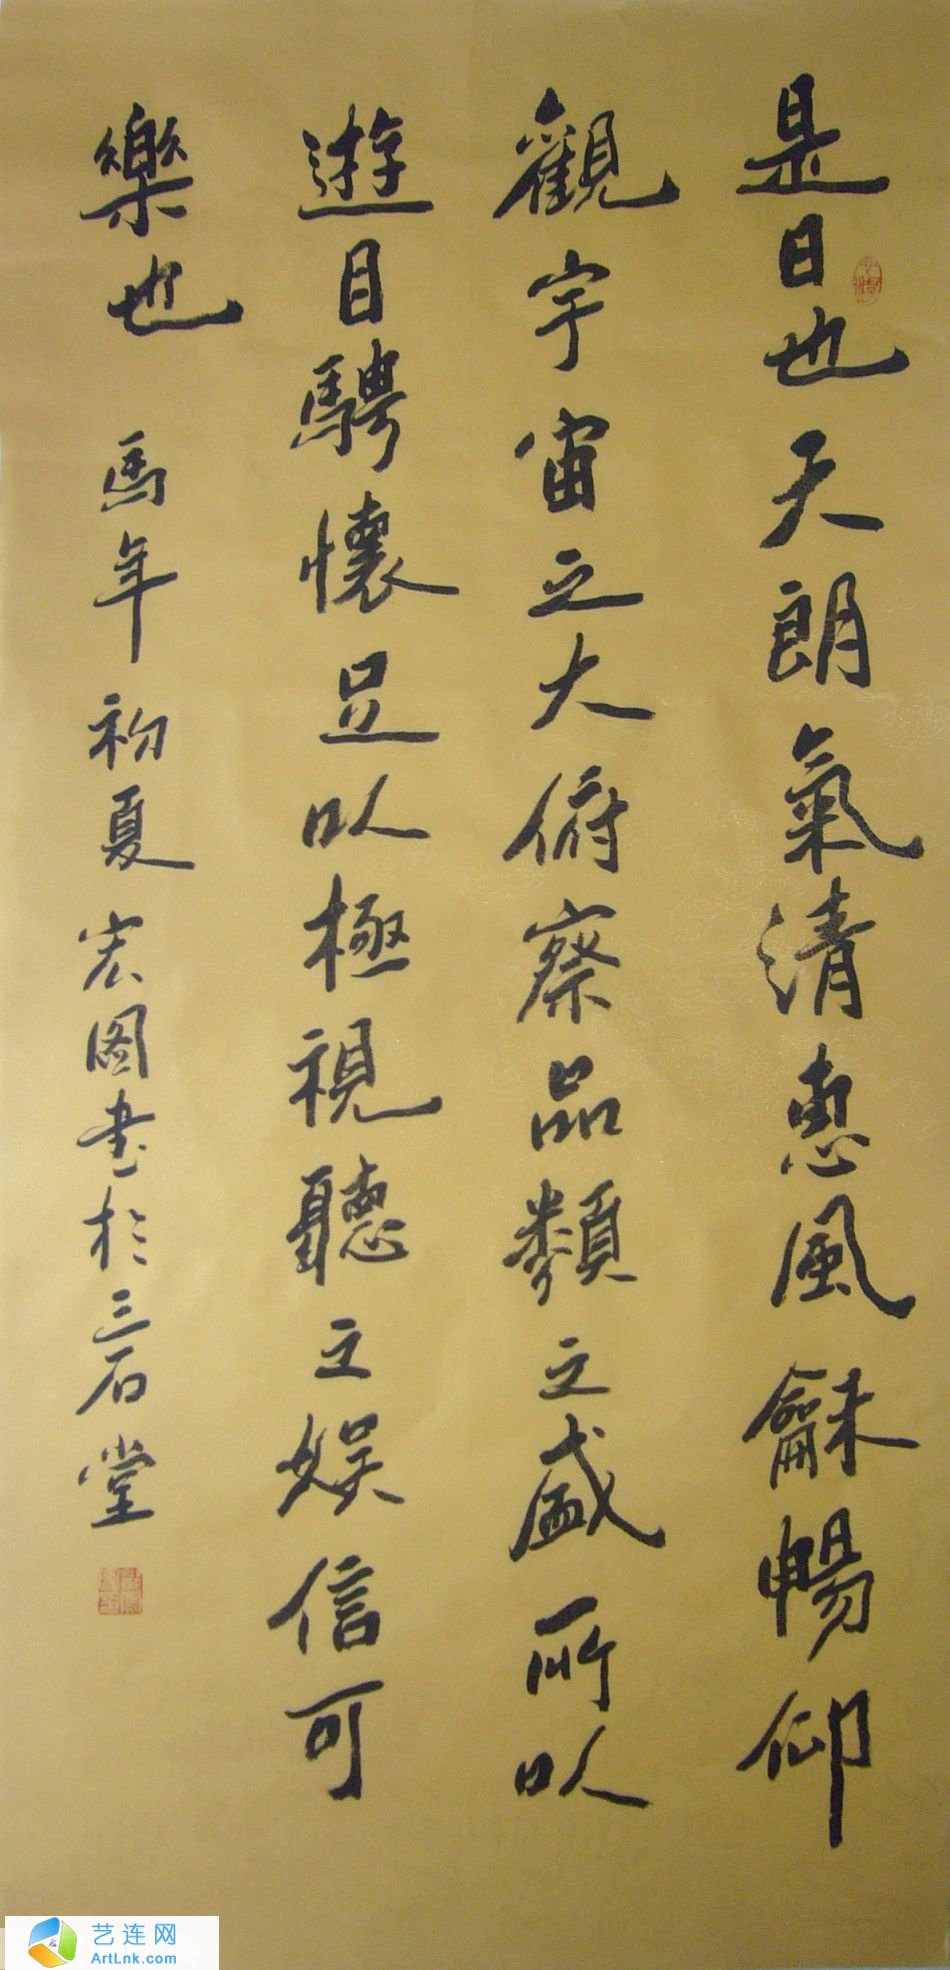 是日也天朗氣清惠風龢暢仰
觀宇宙之大俯察品類之盛所以
遊目騁懷足以極視聽之娛信可
樂也 馬年初夏宏图書於三石堂
艺连网
ArtLnk.com